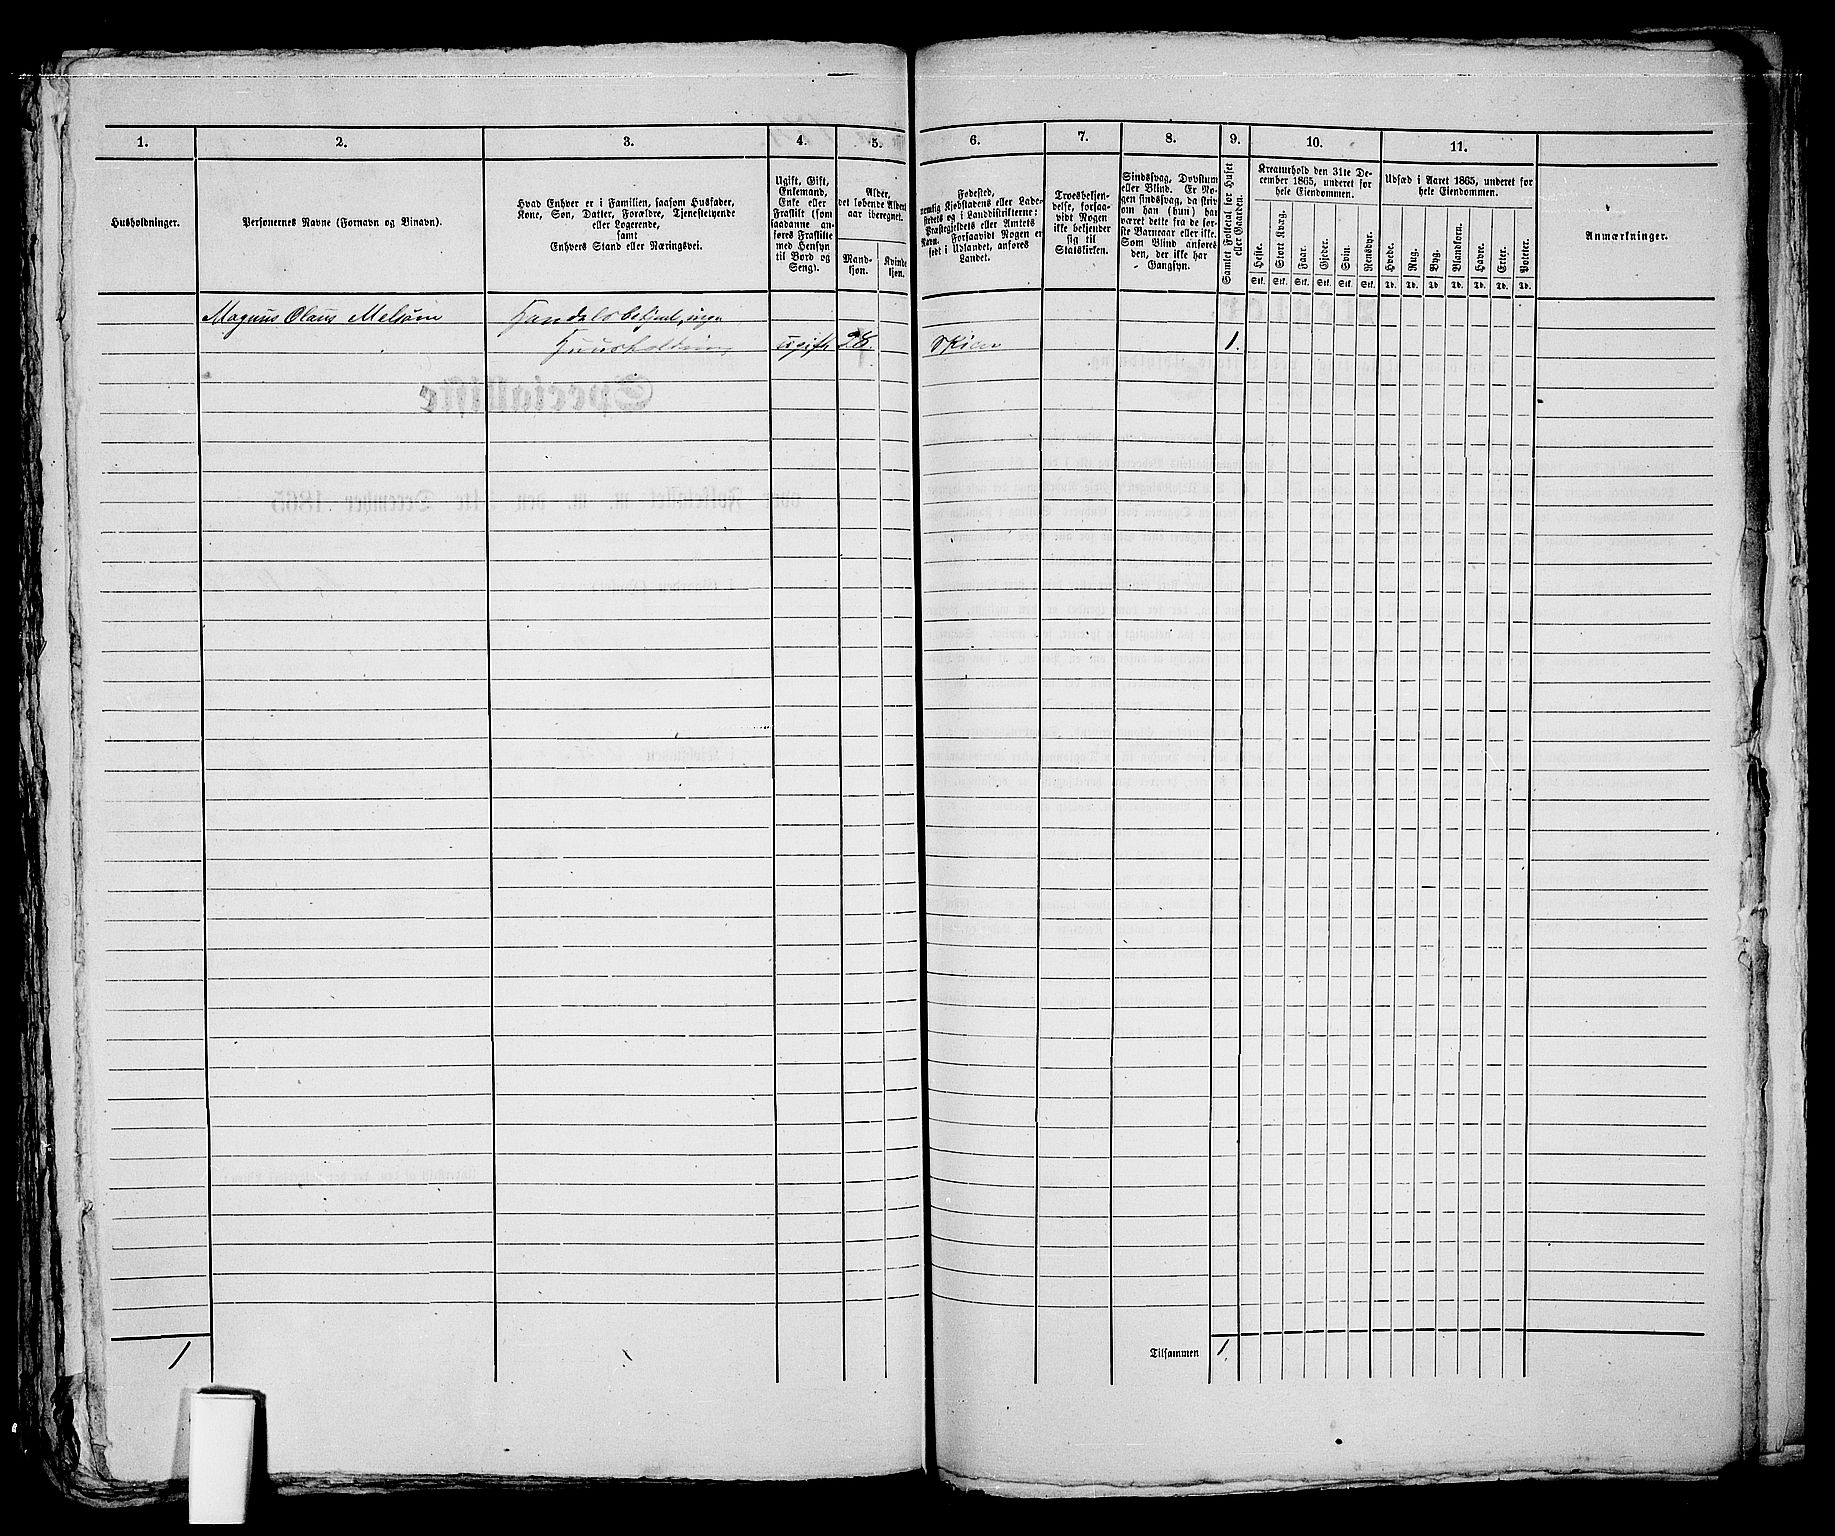 1. 2. 3. 4. 5. 6. 7. 8. 9. 10. 11.
Husholdninger.
Personernes Navne (Fornavn og Binavn).
Hvad Enhver er i Familien, saasom Husfader,
Kone, Søn, Datter, Forældre, Tjenestetyende
eller Logerende,
samt
Enhvers Stand eller Næringsvei.
Ugift, Gift,
Enkemand,
Enke eller
Fraskilt (som
saadanne an-
føres Fraskilte
med Hensyn
til Bord og
Seng).
Alder,
det løbende Alders-
aar iberegnet.
Mand-
kjøn.
Kvinde-
kjøn.
Fødested,
nemlig Kjøbstadens eller Lade-
stedets og i Landdistrikterne:
Præstegjeldets eller Amtets
Navn. Forsaavidt Nogen er
født i Udlandet, anføres
Landet.
Troesbekjen-
delse, forsaa-
vidt Nogen
ikke bekjender
sig til
Statskirken.
Sindssvag, Døvstum
eller Blind. Er No-
gen sindssvag, da skriv
om han (hun) har
været dette fra de før-
ste Barneaar eller ikke.
Som Blind anføres
den, der ikke har
Gangsyn.
Samlet Folketal for Huset
eller Gaarden.
Kreaturhold den 31te De-
cember 1865, underet for
hele Eiendommen.
Heste. Stort Kvæg. Faar. Gjeder. Svin. Rensdyr.
Stk. Stk. Stk. Stk. Stk. Stk.
Udsæd i Aaret 1865, underet for
hele Eiendommen.
Hvede. Rug. Byg. Blandkorn. Havre. Erter. Poteter.
Td. Td. Td. Td. Td. Td. Td.
Anmærkninger.
Magnus Olaus Melsøm Handelsbetjent, ingen
Huusholdning ugift 28. Skien 1.
1 Tilsammen 1.